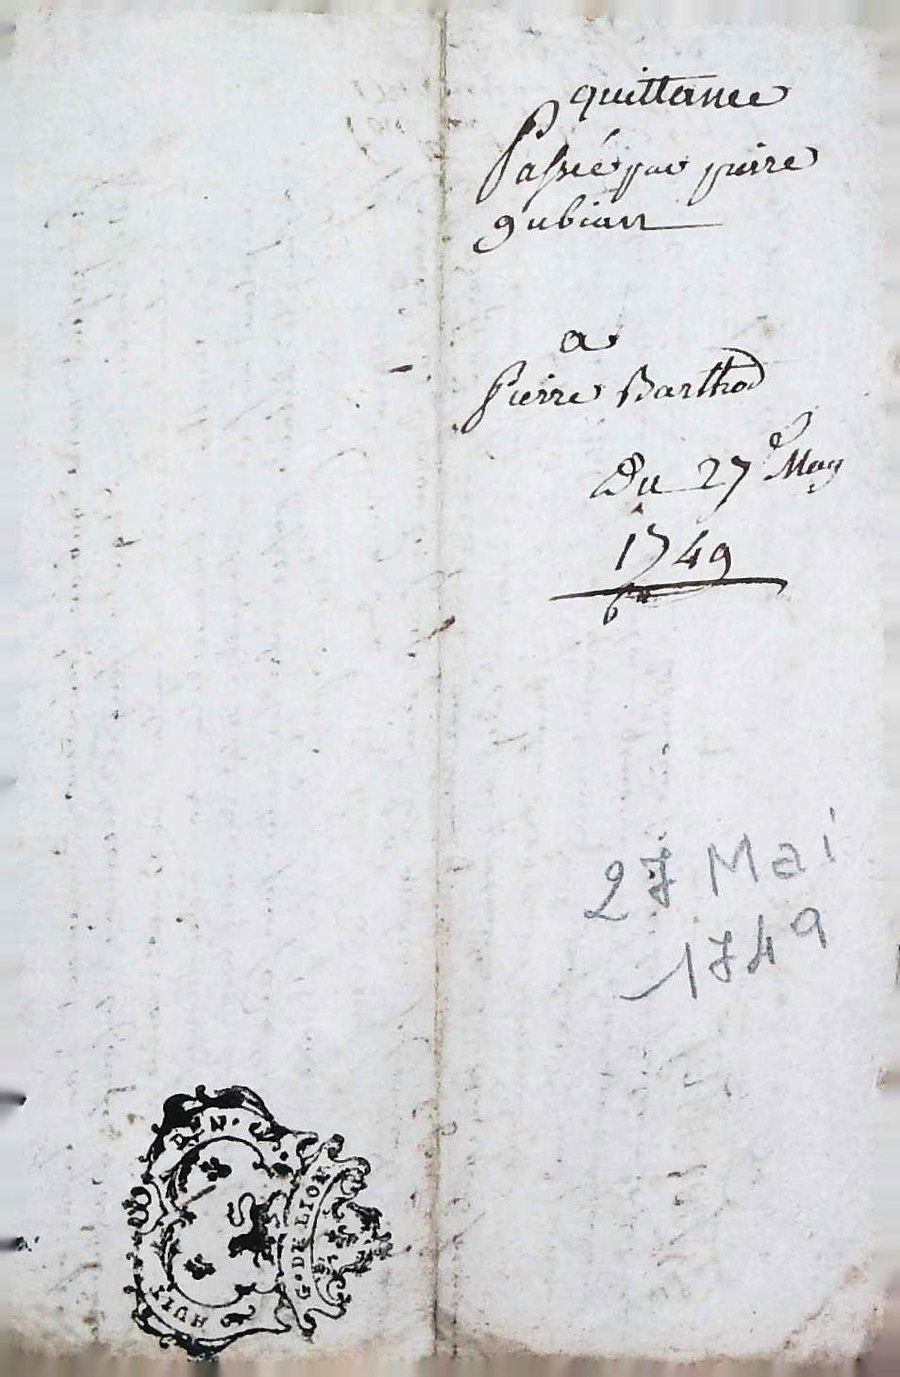 quittance
Passée par pierre
gubian
a
Pierre Barthod
Du 27e May
1749
27 Mai
1749
G. DE LION
HUIT DEN.